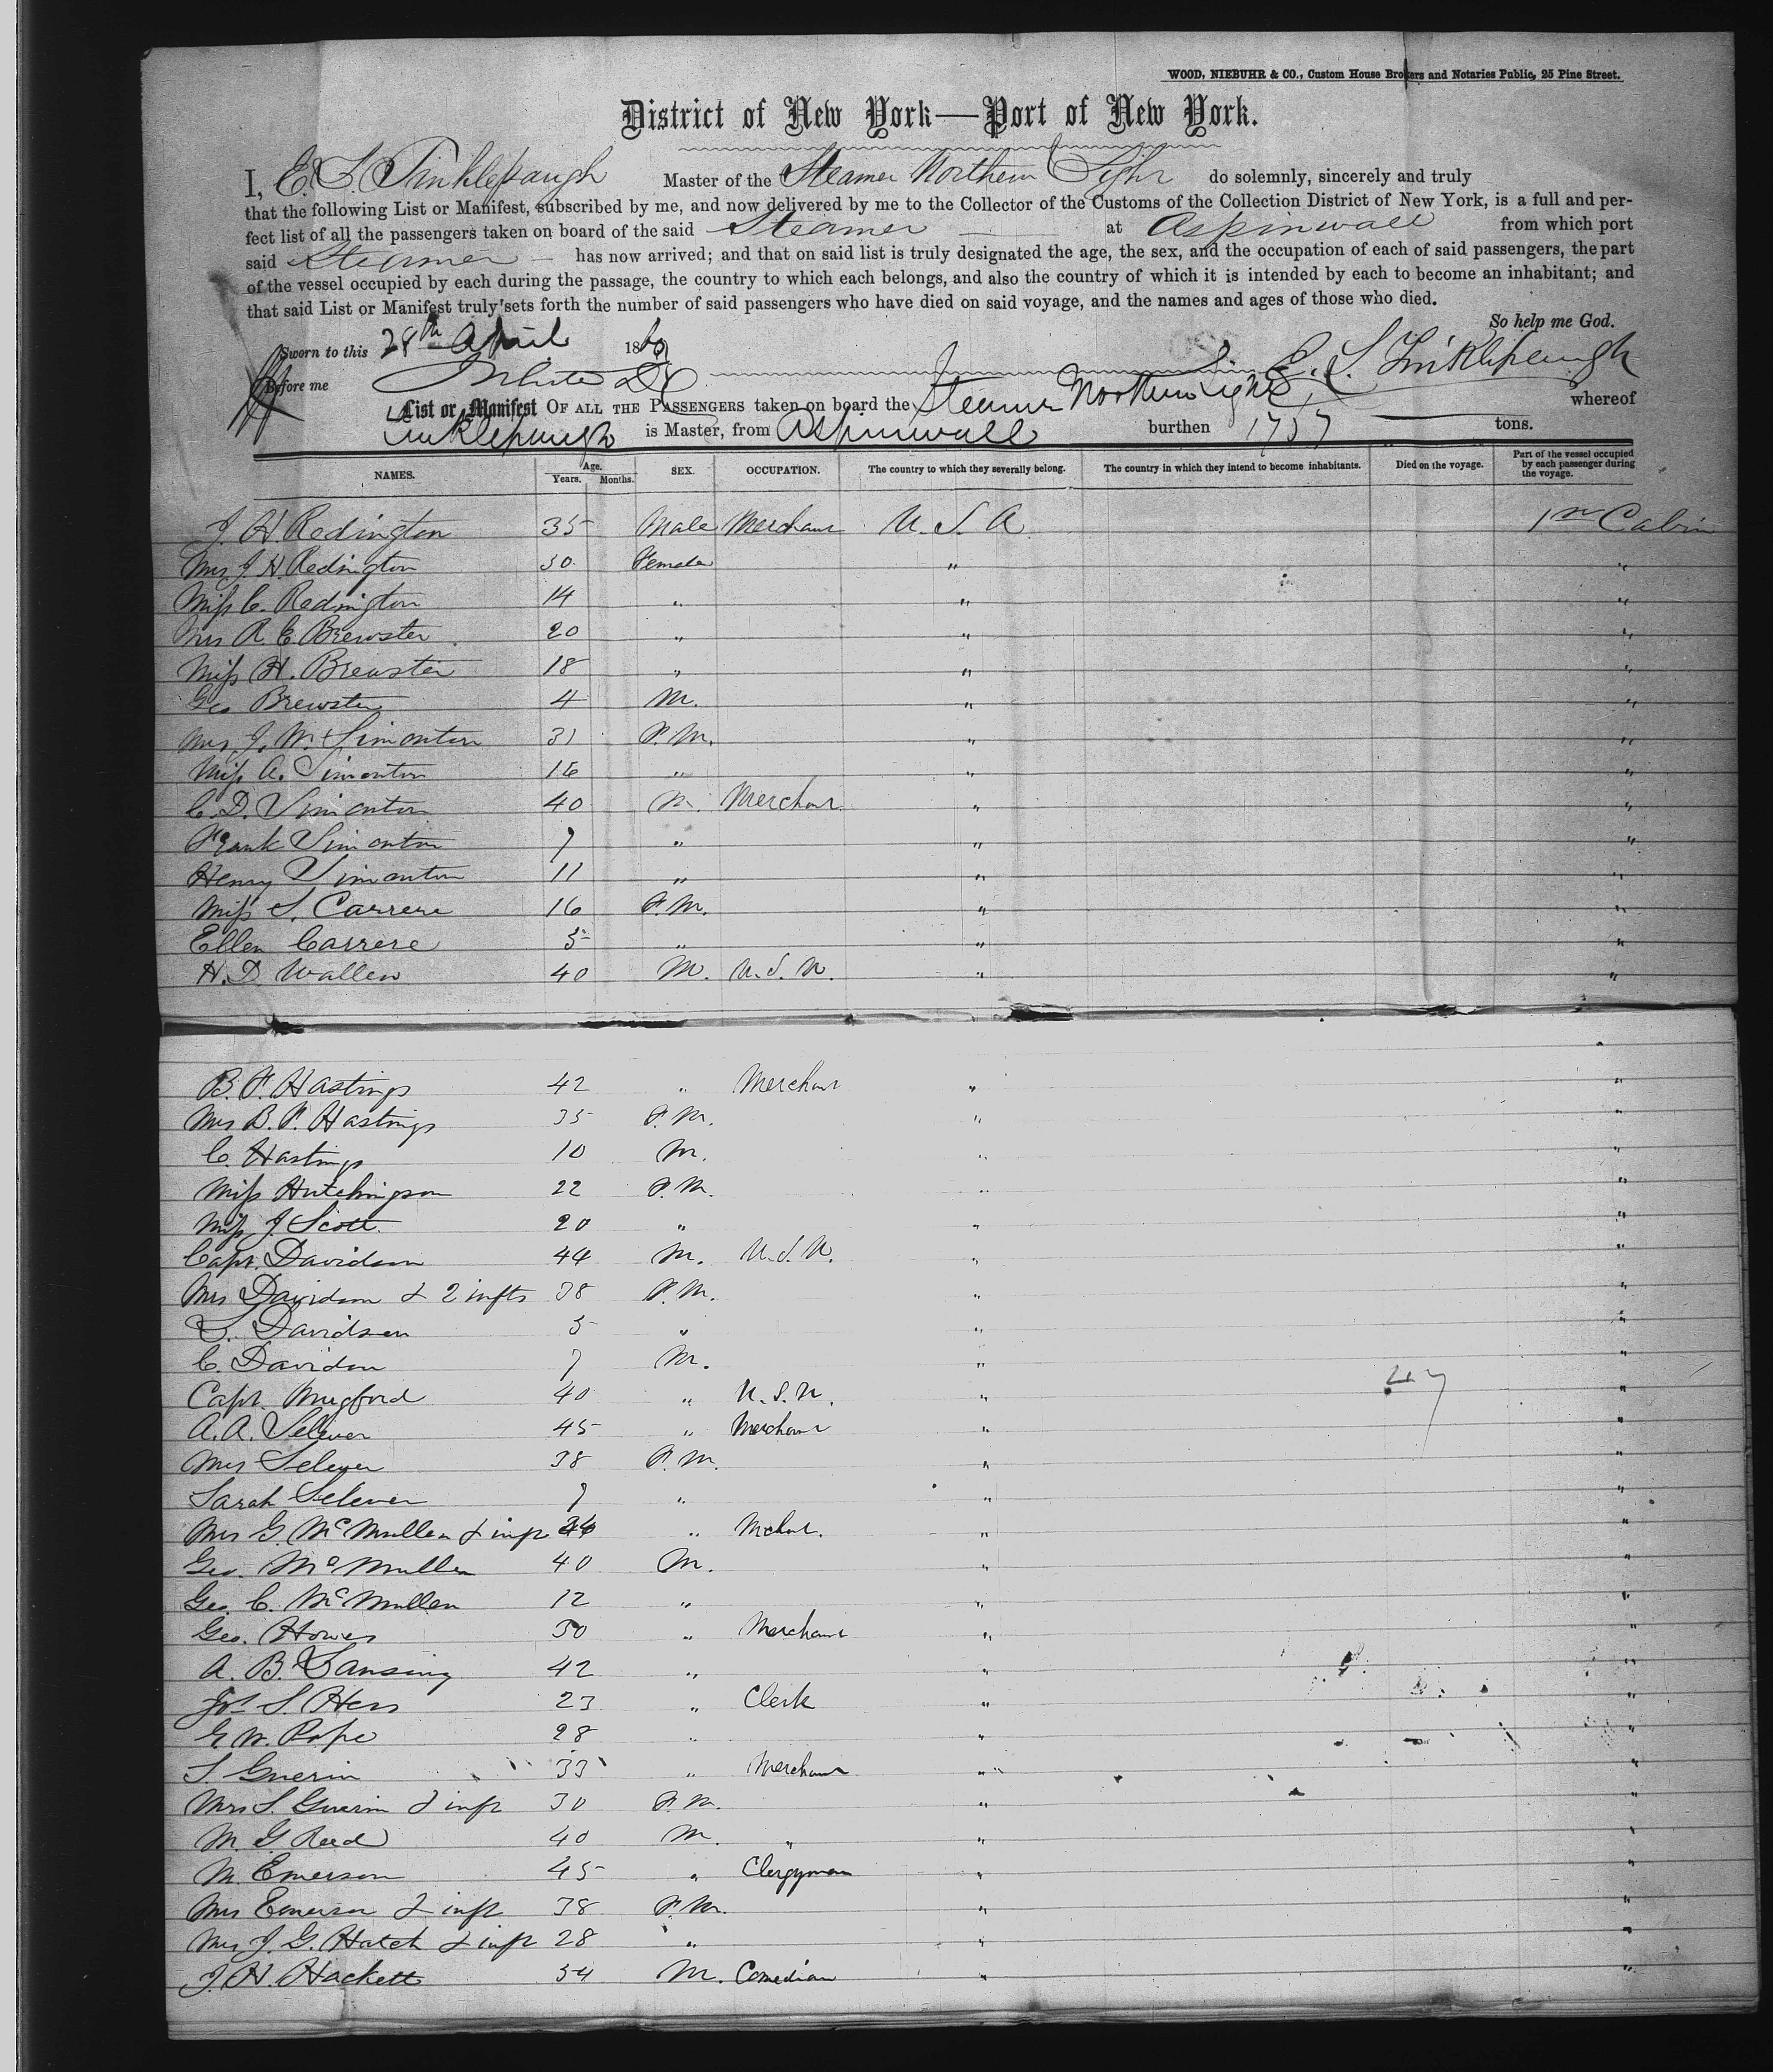 WOOD, NIEBUHR & CO., Custom House Brokers and Notaries Public, 25 Pine Street.
District of New York—Port of New York.
I, E. L. Tinklepaugh Master of the Steamer Northern Light do solemnly, sincerely and truly
that the following List or Manifest, subscribed by me, and now delivered by me to the Collector of the Customs of the Collection District of New York, is a full and per-
fect list of all the passengers taken on board of the said Steamer at Aspinwall from which port
said Steamer has now arrived; and that on said list is truly designated the age, the sex, and the occupation of each of said passengers, the part
of the vessel occupied by each during the passage, the country to which each belongs, and also the country of which it is intended by each to become an inhabitant; and
that said List or Manifest truly sets forth the number of said passengers who have died on said voyage, and the names and ages of those who died.
So help me God.
Sworn to this 28th April 1860
Before me E. L. Tinklepaugh
List or Manifest OF ALL THE PASSENGERS taken on board the Steamer Northern Light whereof
Tinklepaugh is Master, from Aspinwall burthen 1757 tons.
NAMES. Age. Years. Months. SEX. OCCUPATION. The country to which they severally belong. The country in which they intend to become inhabitants. Died on the voyage. Part of the vessel occupied by each passenger during the voyage.
J. H. Redington 35 Male Merchant U. S. A. 1st Cabin
Mrs J. H. Redington 30 Female " "
Miss C. Redington 14 " " "
Mrs R. E. Brewster 20 " " "
Miss H. Brewster 18 " " "
Geo Brewster 4 M. " "
Mrs J. W. Simonton 31 F. M. " "
Miss A. Simonton 16 " " "
C. D. Simonton 40 M. Merchant " "
Frank Simonton 7 " " "
Henry Simonton 11 " " "
Miss S. Carrere 16 F. M. " "
Ellen Carrere 5 " " "
H. D. Wallen 40 M. U. S. N. " "
B. F. Hastings 42 " Merchant " "
Mrs B. F. Hastings 35 F. M. " "
C. Hastings 10 M. " "
Miss Hutchingson 22 F. M. " "
Miss J. Scott 20 " " "
Capt. Davidson 44 M. U. S. N. " "
Mrs Davidson & 2 infts 38 F. M. " "
S. Davidson 5 " " "
C. Davidson 7 M. " "
Capt. Mugford 40 " U. S. N. " "
A. A. Selover 45 " Merchant " "
Mrs Selover 38 F. M. " "
Sarah Selover 7 " " "
Mrs G. McMullen & inft " Mchnt. " "
Geo. McMullen 40 M. " "
Geo. C. McMullen 12 " " "
Geo. Howes 30 " Merchant " "
A. B. Lansing 42 " " "
Jos S. Hess 23 " Clerk " "
G W. Pope 28 " " "
S. Guerin 33 " Merchant " "
Mrs S. Guerin & inft 30 F. M. " "
M. G. Reed 40 M. " " "
M. Emerson 45 " Clergyman " "
Mrs Emerson & inft 38 F. M. " "
Mrs J. G. Hatch & inft 28 " " "
J. H. Hackett 54 M. Comedian " "
47